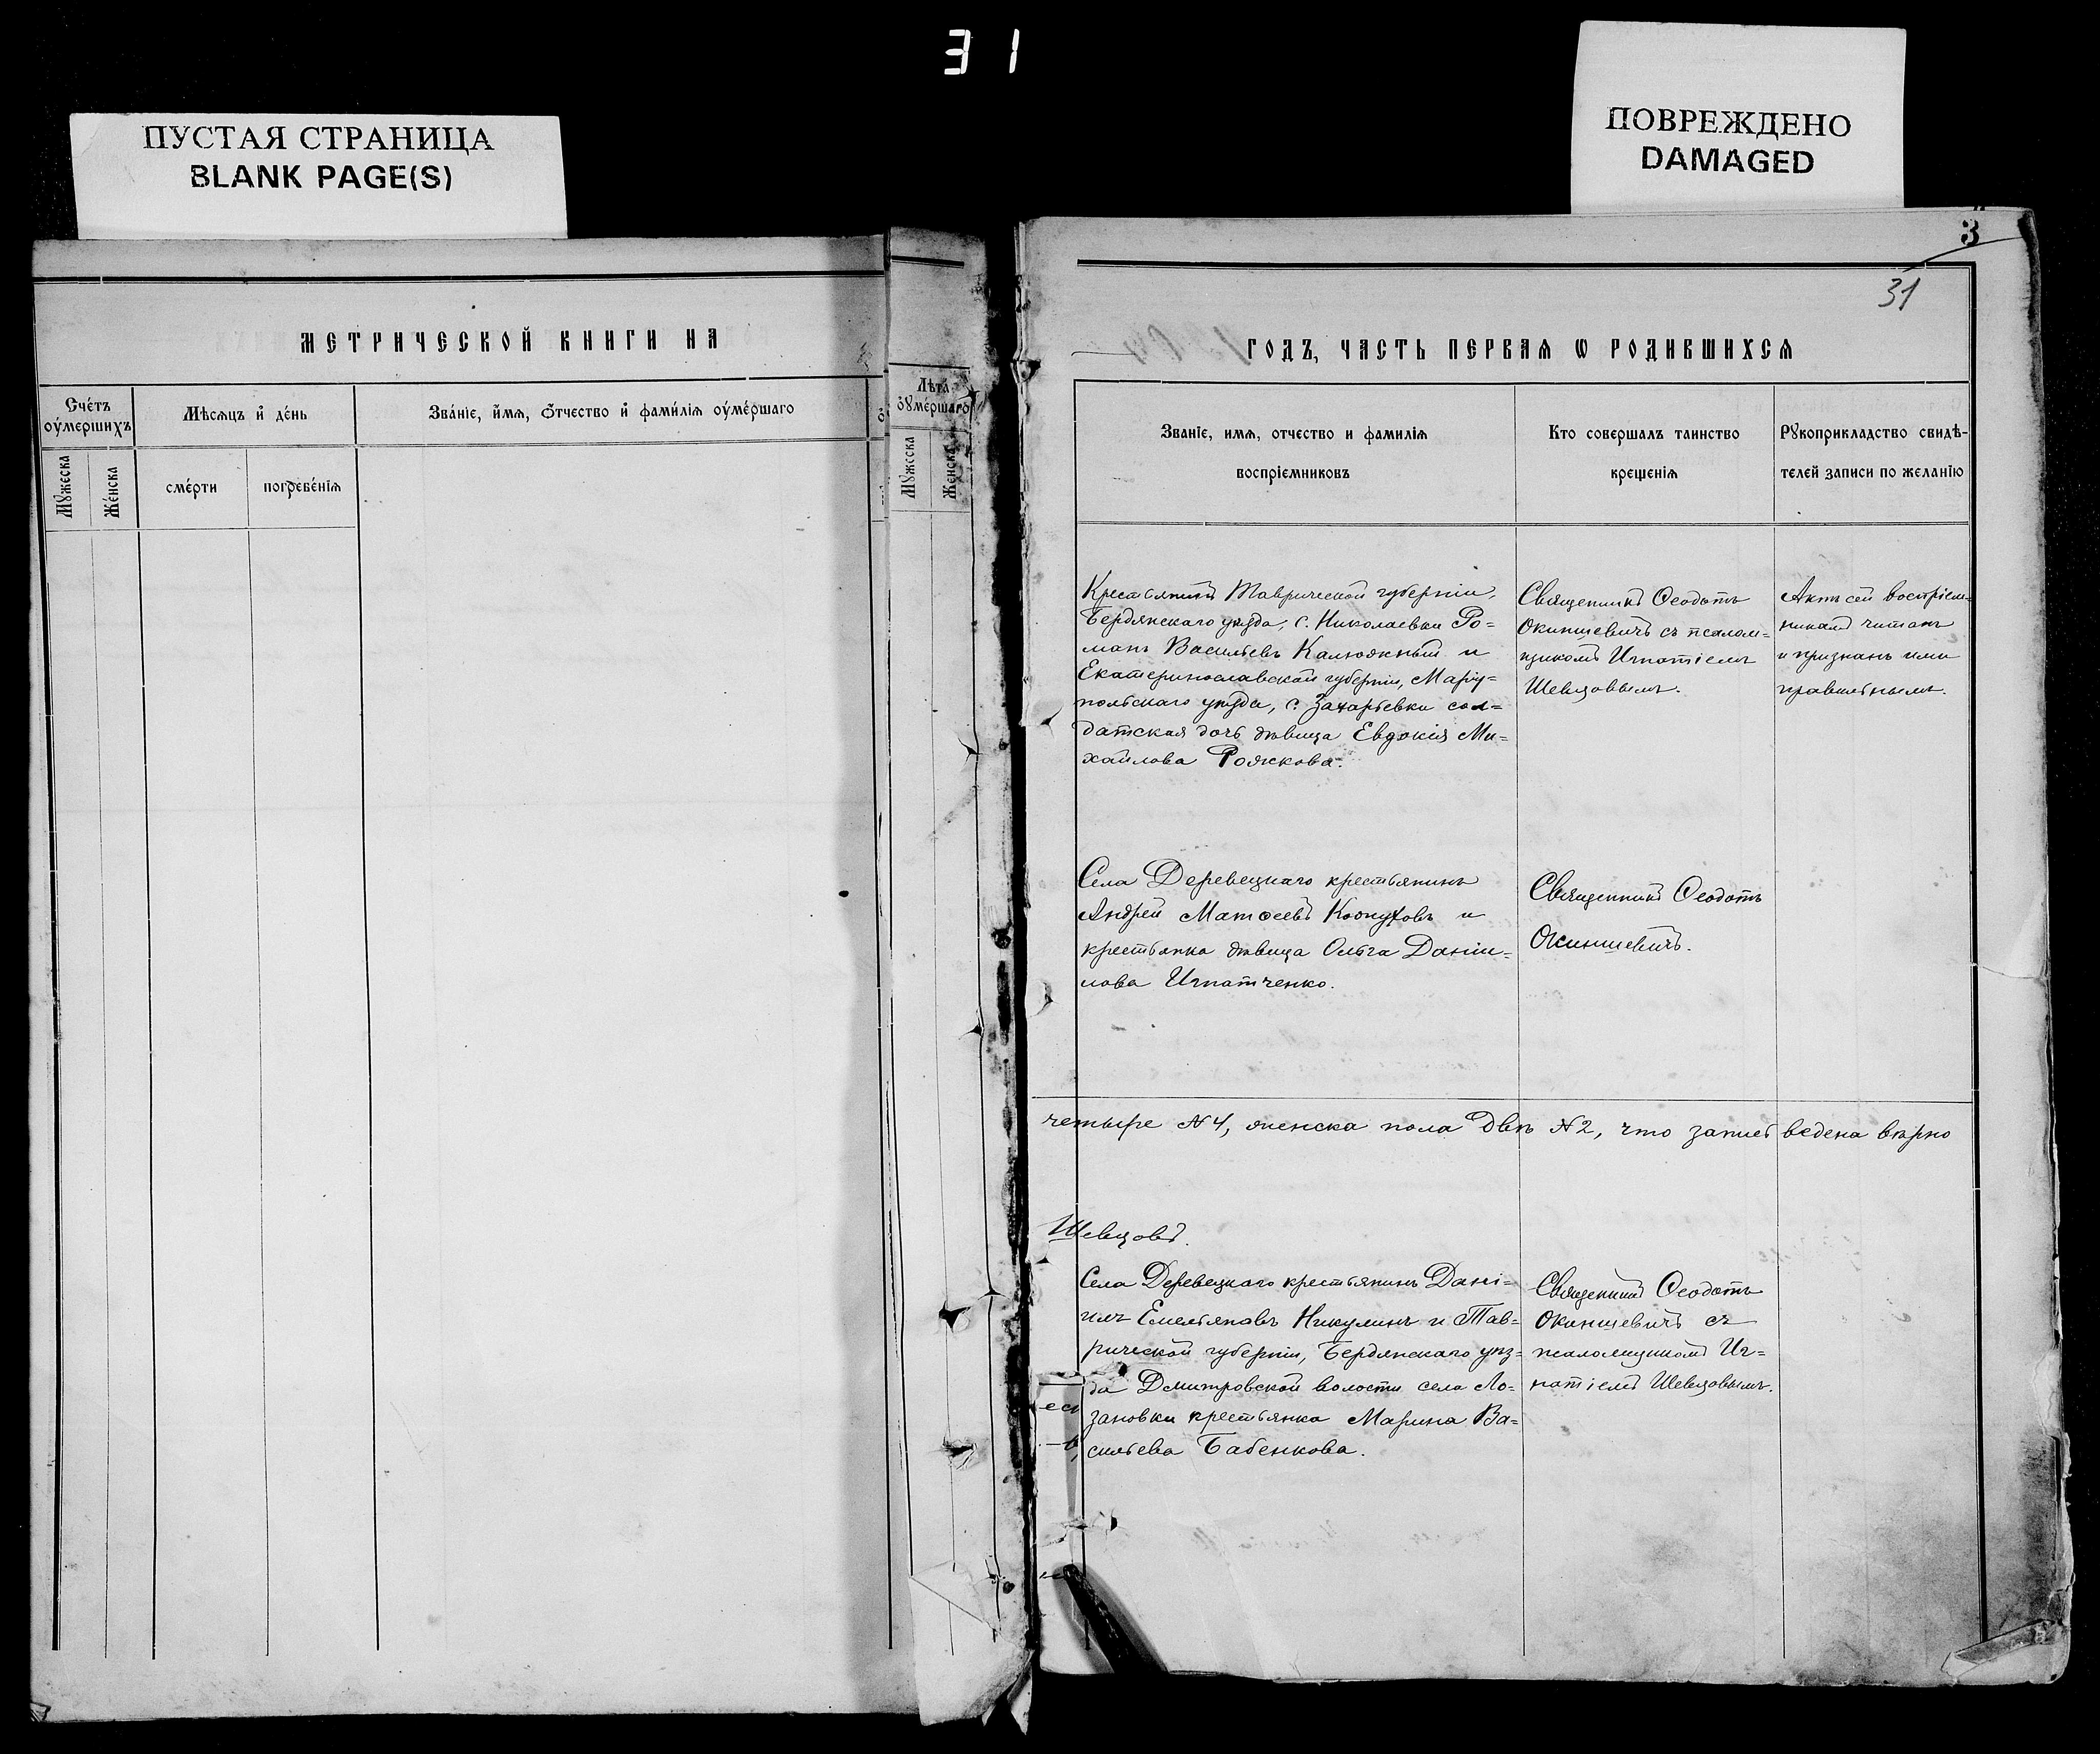 31
ПУСТАЯ СТРАНИЦА
BLANK PAGE(S)
ПОВРЕЖДЕНО
DAMAGED
МЕТРИЧЕСКОЙ КНИГИ НА
Счéтъ оу҆мєршихъ
Мѣсѧцъ и҆ дéнь
Звáнїе, и҆́мѧ, ѻ҆́тчєство и҆ фамѝлїѧ оу҆мéршаго
Лѣта̀ оу҆мéршаго
Мꙋ́жєска
Жéнска
смéрти
погрєбéнїѧ
Мꙋ́жєска
Жéнска
3
31
ГОДЪ, ЧАСТЬ ПЕРВАѦ Ѡ РОДИВШИХСѦ
Званїе, имѧ, отчєство и фамилїѧ
воспрїємниковъ
Кто совєршалъ таинство
крєщєнїѧ
Рꙋкоприкладство свидѣ-
тєлєй записи по жєланїю
Крестьянинъ Таврической губерніи,
Бердянскаго уѣзда, с. Николаевки Ро=
манъ Васильевъ Калюжный и
Екатеринославской губерніи, Маріу=
польскаго уѣзда, с. Захарьевки сол=
датская дочь дѣвица Евдокія Ми=
хайлова Рожкова.
Священникъ Ѳеодотъ
Окиншевичъ съ псалом=
щикомъ Игнатіемъ
Шевцовымъ.
Актъ сей воспріем=
никамъ читанъ
и признанъ ими
правильнымъ.
Села Деревецкаго крестьянинъ
Андрей Матѳеевъ и
крестьянка дѣвица Ольга Даніи=
лова Игнатченко.
Священникъ Ѳеодотъ
Окиншевичъ.
четыре №4, женска пола двѣ №2, что запись ведена вѣрно
Шевцовъ.
Села Деревецкаго крестьянинъ Дані=
илъ Емельяновъ Никулинъ и Тав=
рической губерніи, Бердянскаго уѣз=
да Дмитровской волости села Ло=
зановки крестьянка Марина Ва=
сильева Бабенкова.
Священникъ Ѳеодотъ
Окиншевичъ съ
псаломщикомъ Иг=
натіемъ Шевцовымъ.